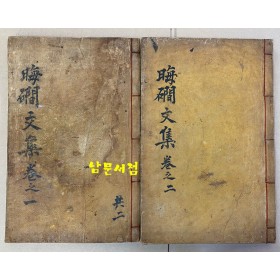 晦磵文集 卷之一
共二
남문서점
晦磵文集 卷之二